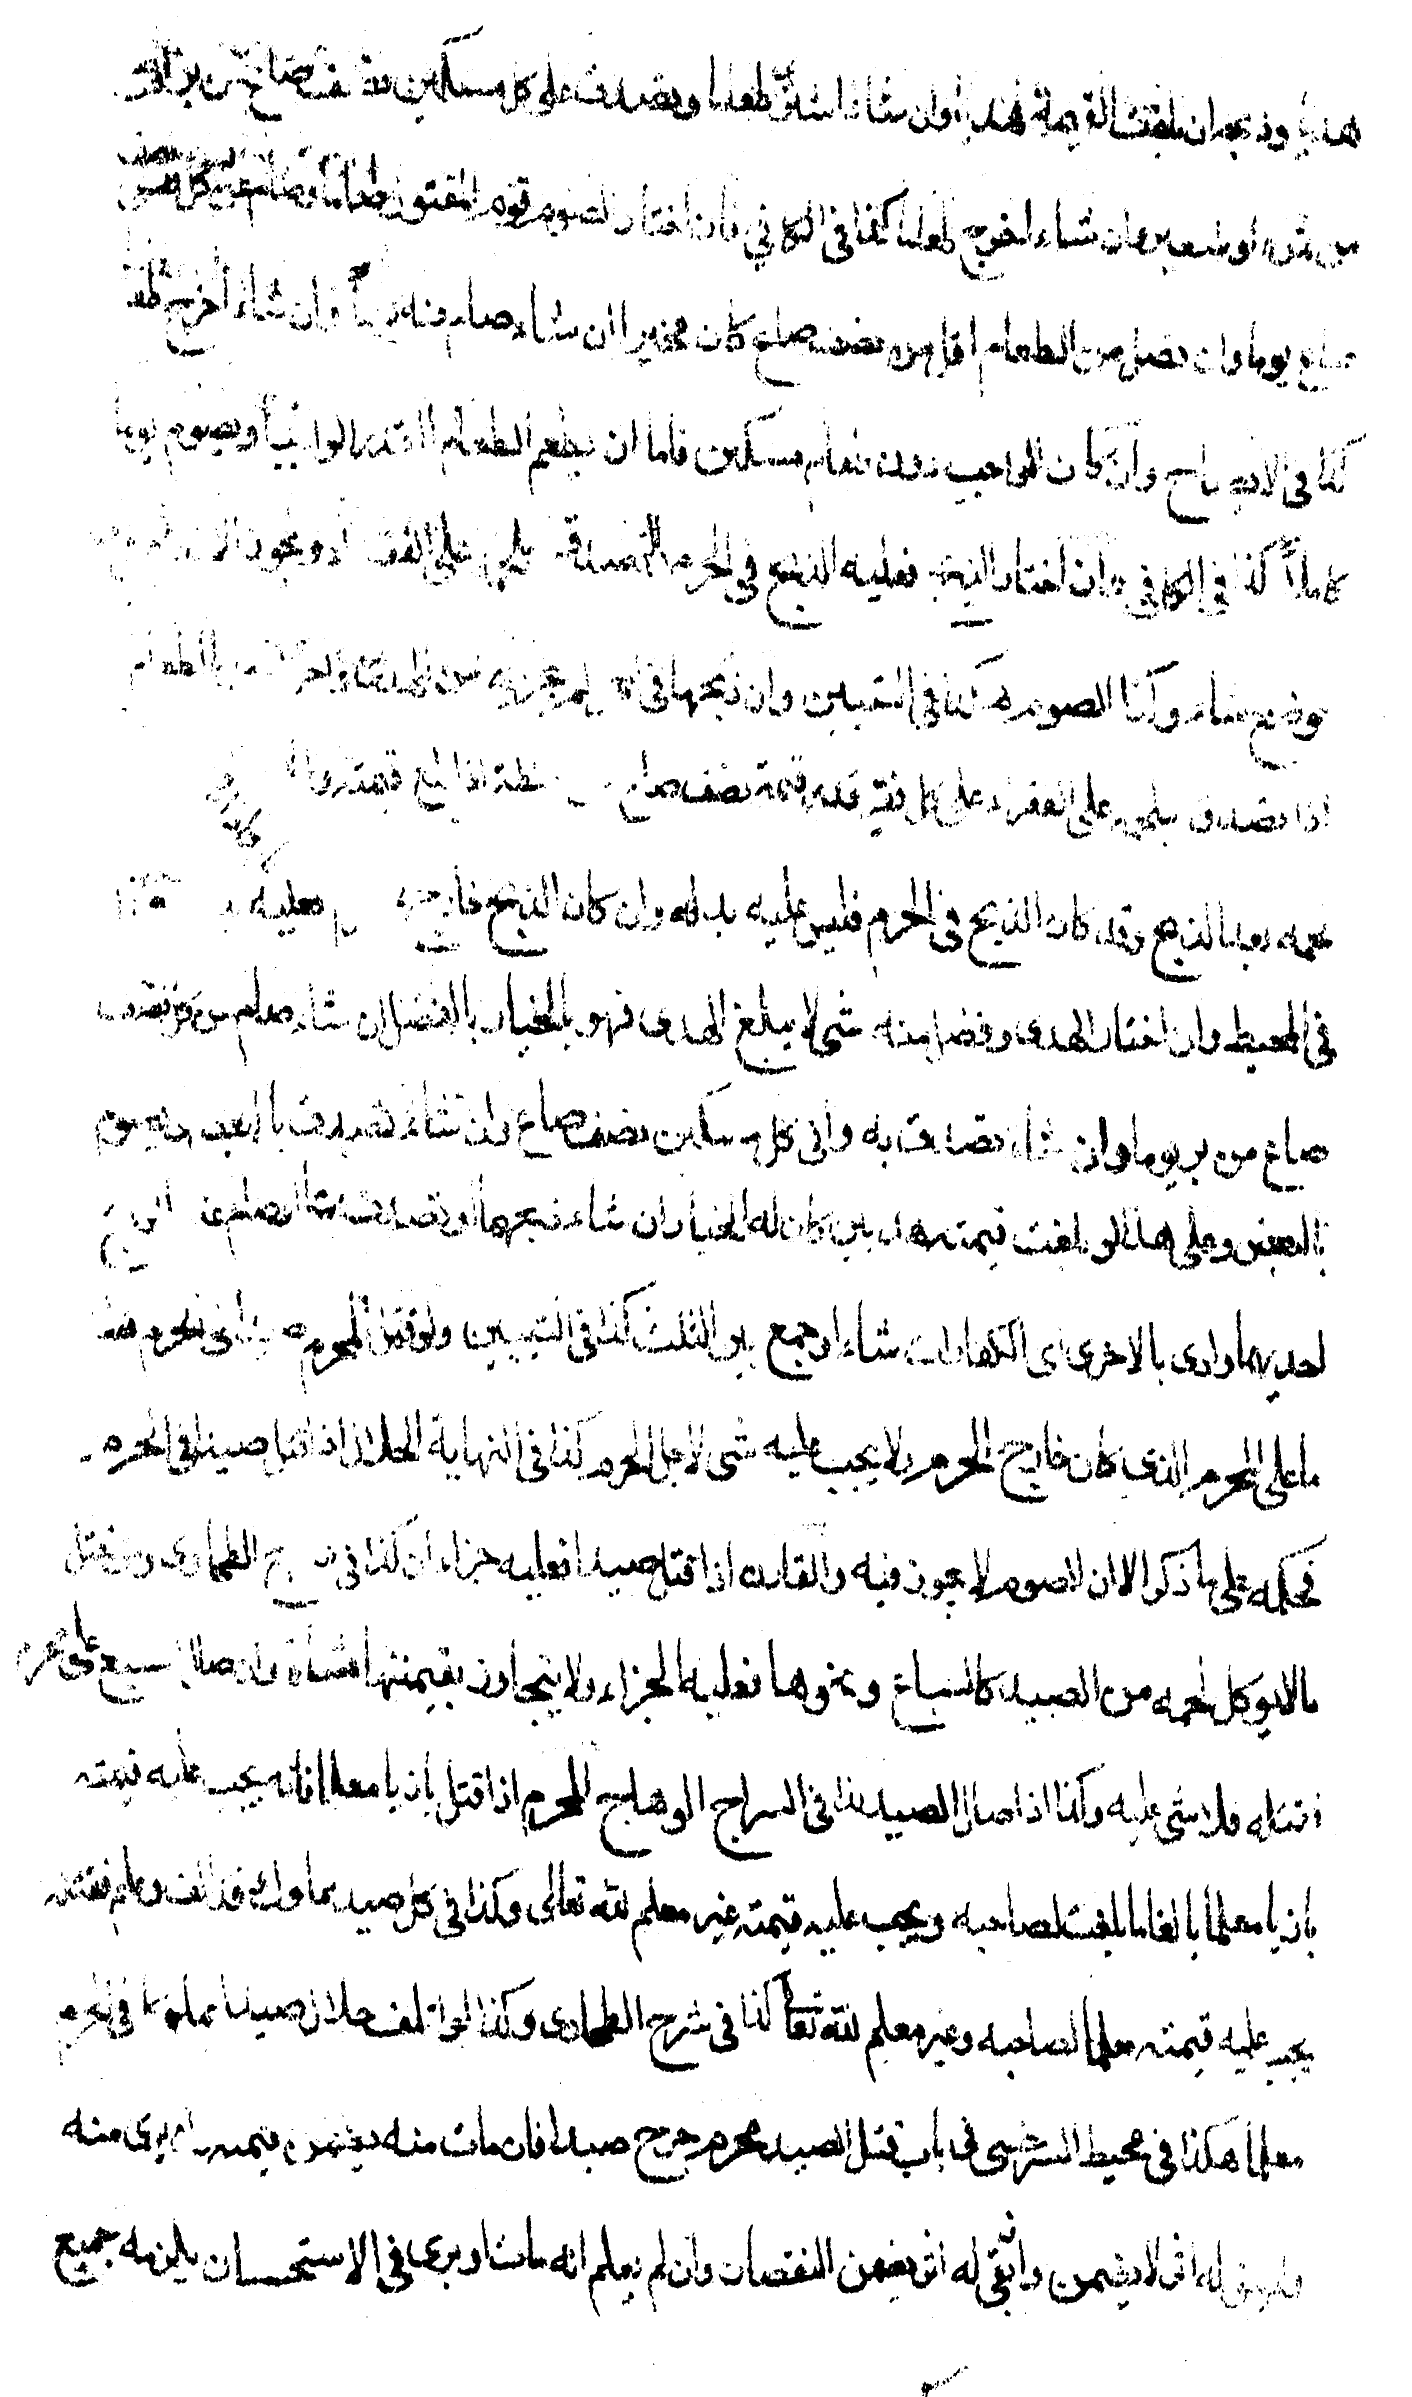 هديا وذبحه ان بلغت القيمة هديا وان شاء اشترى طعاما وتصدق على كل مسكين نصف صاع من بر او صاع
من تمر او شعير وان شاء اخرج طعاما كذا فى الكافي فان اختار الصوم قوم المقتول طعاما وصام عن كل نصف
صاع يوما وان فضل من الطعام اقل من نصف صاع كان مخيرا ان شاء صام عنه يوما وان شاء اخرج طعاما
كذا فى الايضاح وان كان الواجب دون طعام مسكين فاما ان يطعم الطعام القدر الواجب او يصوم يوما
كاملا كذا فى الكافي وان اختار الذبح فعليه الذبح في الحرم والتصدق بلحمه على الفقراء ويجوز الاطعام في اي
موضع شاء وكذا الصوم هكذا فى التبيين وان ذبحها فى لم يجزيه عن الهدي بالطعام
اذا تصدق بلحمه على الفقراء على كل فقير قدر قيمة نصف صاع حنطة اذا بلغ قيمته
لحمه بعد الذبح وقد كان الذبح فى الحرم فليس عليه بدله وان كان الذبح خارج فعليه
فى المحيط وان اختار الهدى وفضل منه شى لا يبلغ الهدى فهو بالخيار بالفضل ان شاء صام عن كل نصف
صاع من بر يوما وان شاء تصدق به واتى كل مسكين نصف صاع وان شاء تصدق بالبعض ويصوم
بالبعض وعلى هذا لو بلغت قيمته هديين كان له الخيار ان شاء ذبحهما او تصدق بهما او صام
احديهما وادى بالاخرى اى الكفارات شاء او جمع بين الثلث كذا فى التبيين ولو قتل المحرم صيدا فى الحرم فعليه
ما على المحرم الذى كان خارج الحرم ولا يجب عليه شى لاجل الحرم كذا فى النهاية الحلال اذا قتل صيدا فى الحرم
فحكمه على ما ذكرنا الا ان الصوم لا يجوز فيه والقارن اذا قتل صيدا فعليه جزاءان كذا فى شرح الطحاوى ومن قتل
ما لا يوكل لحمه من الصيد كالسباع ونحوها فعليه الجزاء ولا يتجاوز بقيمتها شاة وان صال السبع على محرم
فقتله فلا شى عليه وكذا اذا صال الصيد كذا فى السراج الوهاج المحرم اذا قتل بازيا معلما فانه يجب عليه قيمته
بازيا معلما بالغا ما بلغت لصاحبه ويجب عليه قيمته غير معلم لله تعالى وكذا فى كل صيد مملوك قد الف وعلم فقتله
يجب عليه قيمته معلما لصاحبه وغير معلم لله تعالى كذا فى شرح الطحاوى وكذا لو اتلف حلال صيدا مملوكا فى الحرم
معلما هكذا فى محيط السرخسى فى باب قتل الصيد محرم جرح صيدا فان مات منه يضمن قيمته وان برى منه
ولم يبق له اثر لا يضمن وان بقى له اثر يضمن النقصان وان لم يعلم انه مات او برى فى الاستحسان يلزمه جميع